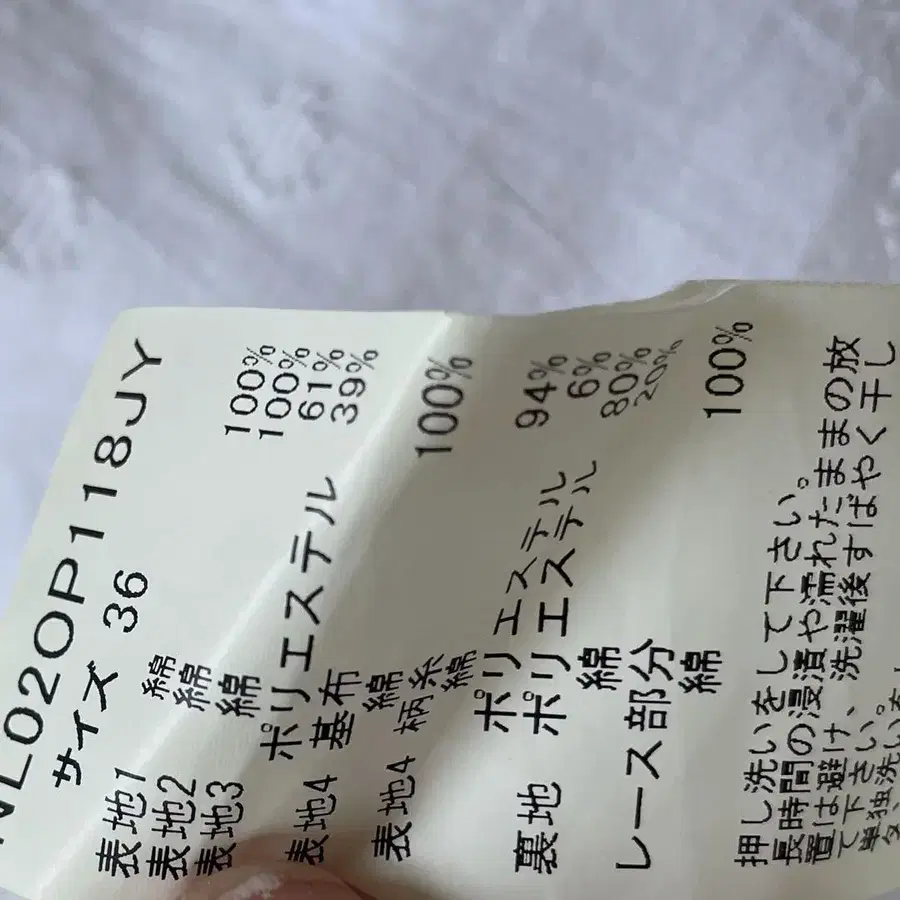 NL02OP118JY
サイズ 36
表地1 綿 100%
表地2 綿 100%
表地3 綿 61%
ポリエステル 39%
表地4 基布
綿 100%
表地4 柄糸
綿 94%
ポリエステル 6%
裏地 ポリエステル 80%
綿 20%
レース部分
綿 100%
押し洗いをして下さい。
長時間の浸漬や濡れたままの放
置は避け、洗濯後すばやく干し
て下さい。
単独洗い